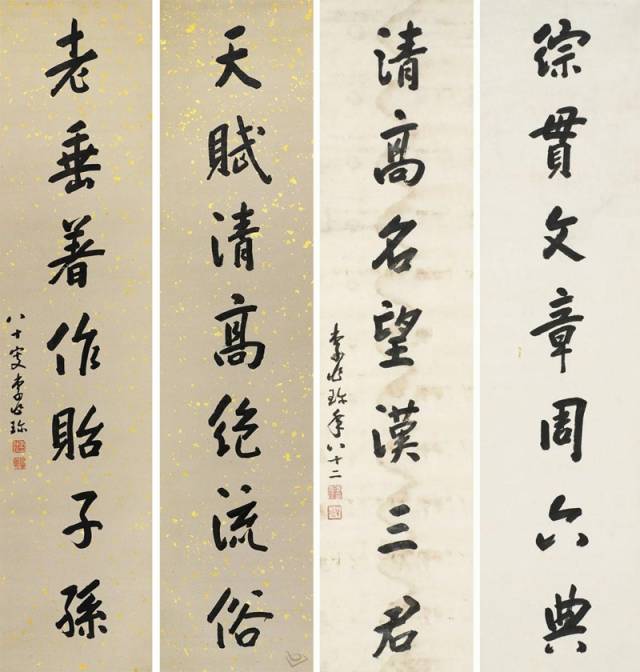 綜貫文章周六典
清高名望漢三君
李兆珍年八十二
天賦清高絕流俗
老垂著作貽子孫
八十叟李兆珍